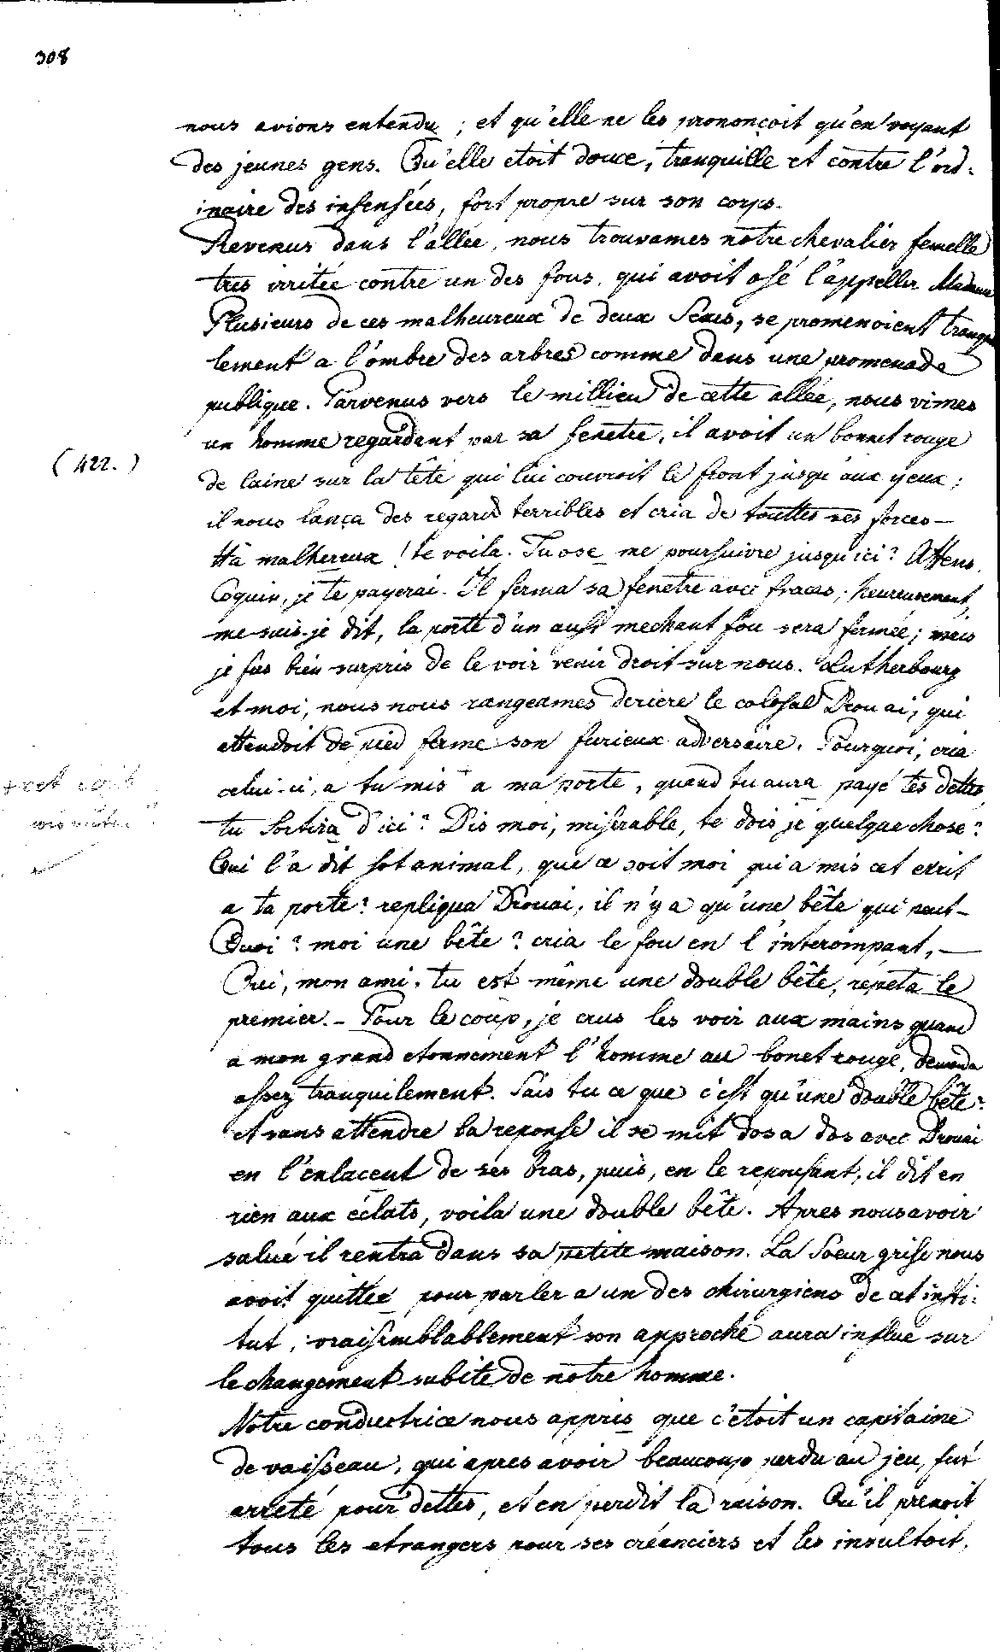 308
nous avions entendu ; et qu'elle ne les prononçoit qu'en voyant
des jeunes gens. Qu'elle etoit douce, tranquille et contre l'ord-
inaire des insensées, fort propre sur son corps.
Revenus dans l'allée, nous trouvames notre chevalier femelle
tres irritée contre un des fous, qui avoit osé l'appeller Madame
Plusieurs de ces malheureux de deux Sexes, se promenoient tranqui
lement a l'ombre des arbres comme dans une promenade
publique. Parvenus vers le millieu de cette allée, nous vimes
un homme regardant par sa fenetre, il avoit un bonnet rouge
(422.)
de laine sur la tête qui lui couvroit le front jusqu'aux yeux ;
il nous lança des regard terribles et cria de touttes ses forces —
Ha malhereux ! te voila. Tu ose me poursuivre jusqu'ici ? Attens,
Coquin, je te payerai. Il ferma sa fenetre avec fracas ; heureusement,
me suis-je dit, la porte d'un aussi mechant fou sera fermée ; mais
je fus bien surpris de le voir venir droit sur nous. Lutherbourg
et moi, nous nous rangeames deriere le colossal Drouai, qui
attendoit de pied ferme son furieux adversaire. Pourquoi, cria
celui-ci, a tu mis + a ma porte, quand tu aura payé tes dettes
+ cet ecrit
tu sortira d'ici ? Dis moi, miserable, te dois je quelque chose ?
Qui l'a dit sot animal, que ce soit moi qui a mis cet ecrit
a ta porte ? repliqua Drouai, il n'y a qu'une bête qui peut —
Quoi ? moi une bête ? cria le fou en l'interompant, —
Oui, mon ami, tu est même une double bête, répéta le
premier. — Pour le coup, je crus les voir aux mains quand
a mon grand etonnement l'homme au bonet rouge, demanda
assez tranquilement. Sais tu ce que c'est qu'une double bête ?
et sans attendre la reponse il se mit dos a dos avec Drouai
en l'enlacent de ses bras, puis, en le repousant, il dit en
rien aux éclats, voila une double bête. Apres nous avoir
salué il rentra dans sa petite maison. La Soeur grise nous
avoit quittée pour parler a un des chirurgiens de cet insti-
tut, vraisemblablement son approche aura influé sur
le changement subite de notre homme.
Notre conductrice nous appris que c'étoit un capitaine
de vaisseau, qui apres avoir beaucoup perdu au jeu, fut
arreté pour dettes, et en perdit la raison. Qu'il prenoit
tous les etrangers pour ses créanciers et les insultoit.